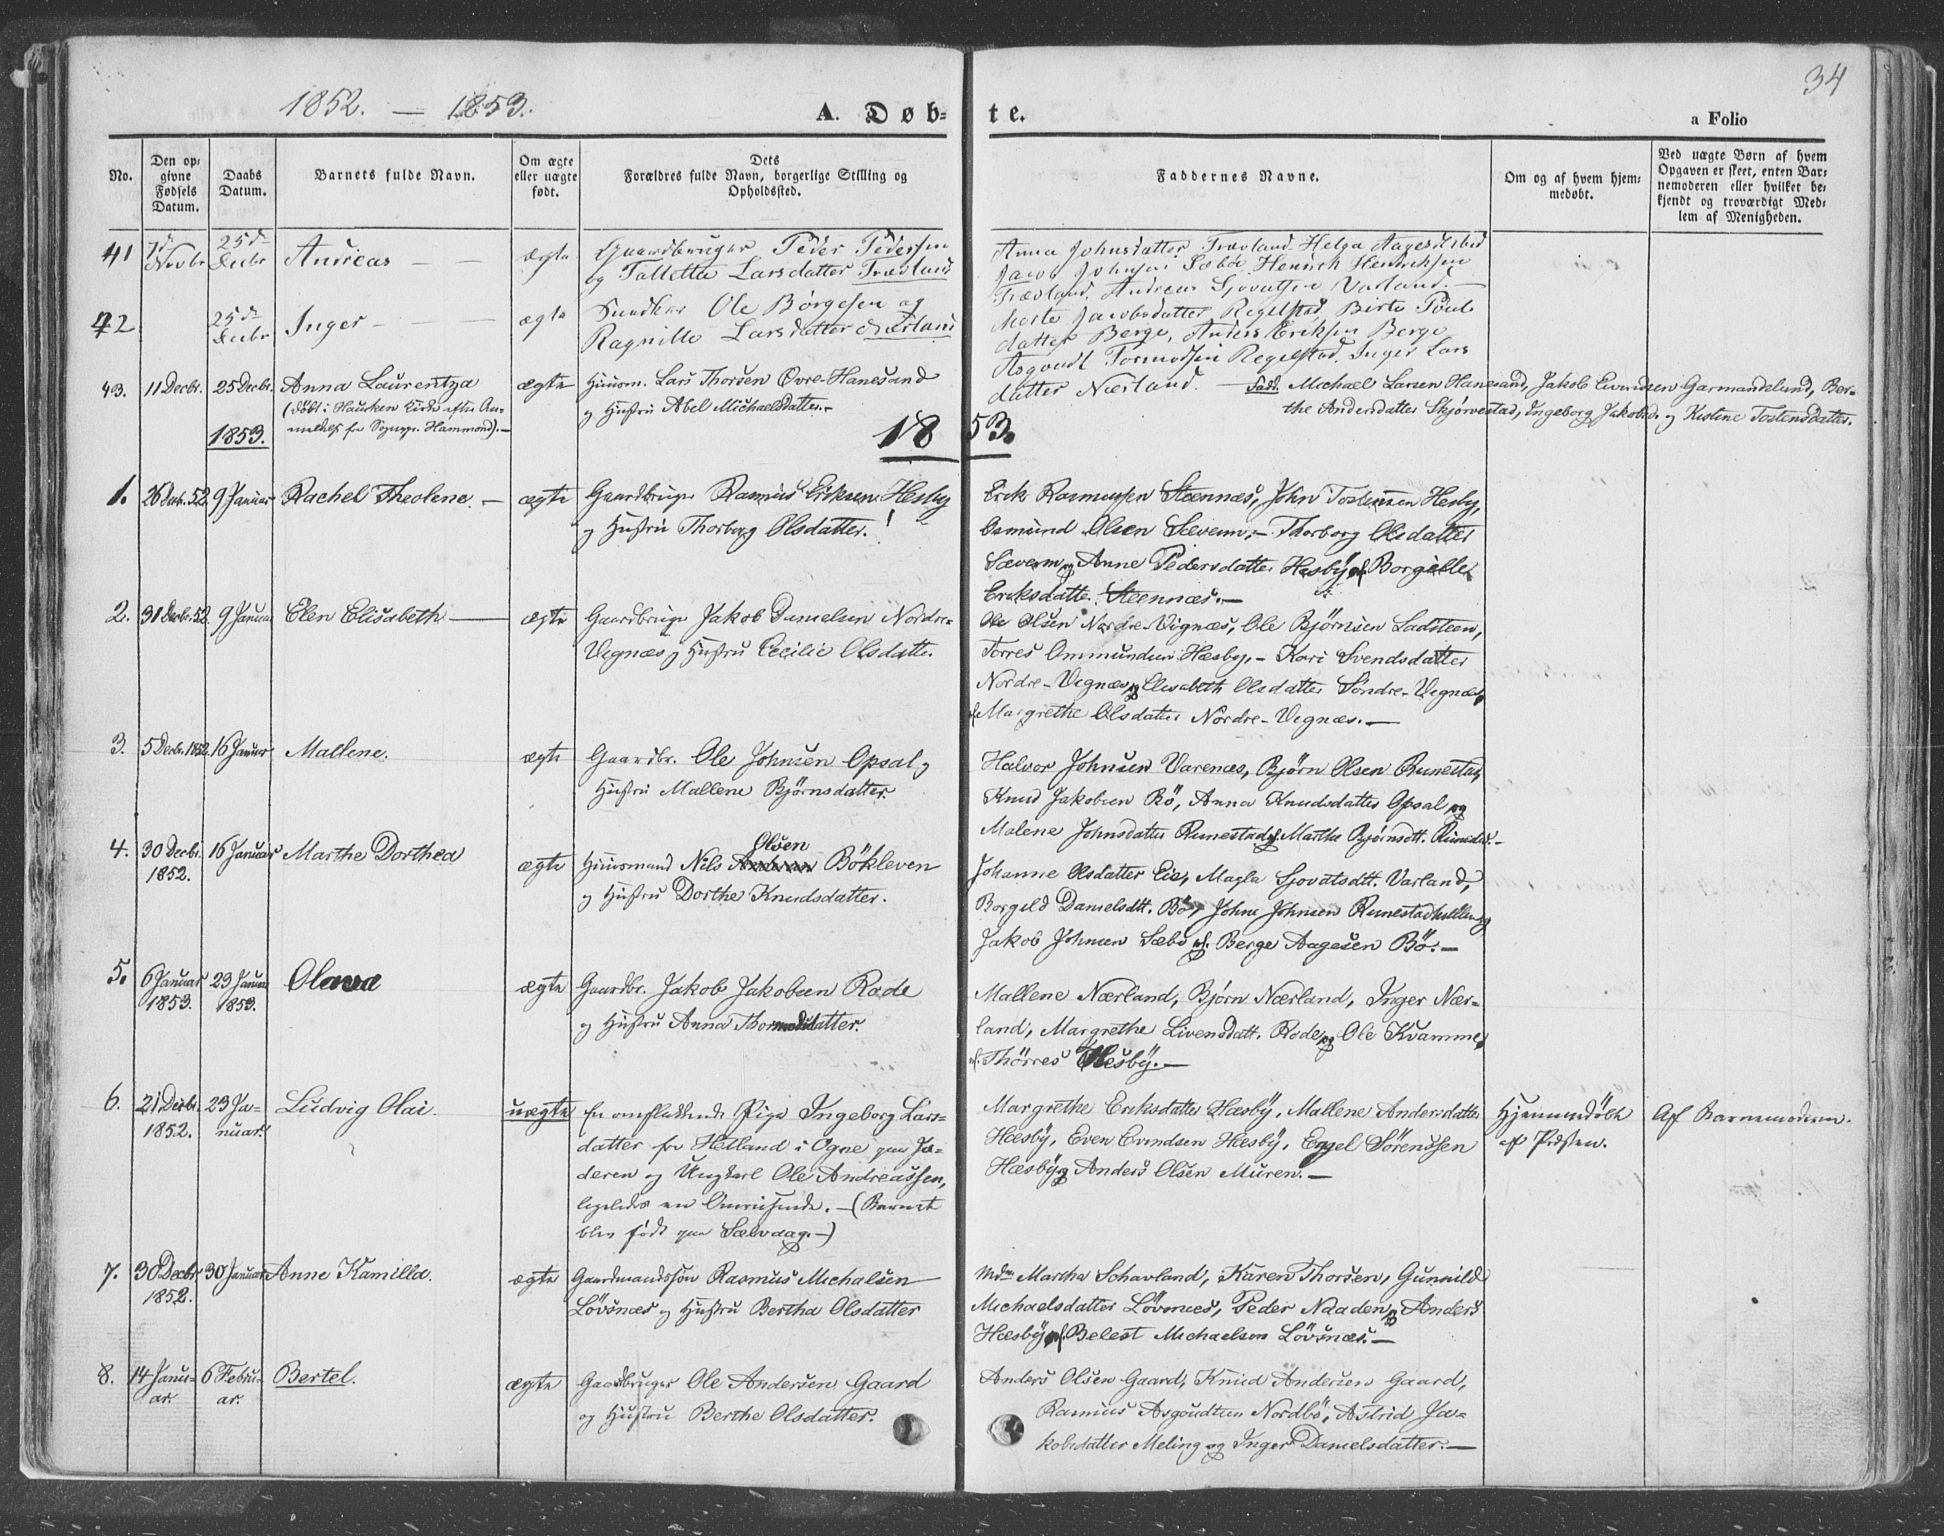 34
1852. — 1853.
A. Døbte.
a Folio
No.
Den opgivne Fødsels Datum.
Daabs Datum.
Barnets fulde Navn.
Om ægte eller uægte født.
Dets Forældres fulde Navn, borgerlige Stilling og Opholdssted.
Faddernes Navne.
Om og af hvem hjemmedøbt.
Ved uægte Børn af hvem Opgaven er skeet, enten Barnemoderen eller hvilket bekjendt og troværdigt Medlem af Menigheden.
41 7de Novbr 25de Decbr Andreas — — ægte Gaardbruger Peder Pedersen
og Tallette Larsdatter Trævland
Anna Johnsdatter Trævland Helga Aagesd
Jacob Johnsen Sæbø Henrich Henrichsen
Trævland. Andreas Sjovatsen Varland. —
42 25de Decbr Inger — — — ægte Ole Børgesen og
Ragnille Larsdatter Nærland
Marte Jacobsdatter Regelstad Birte Povels
datter Berge, Anders Eriksen Berge
Asgoudt Tormodsen Regelstad. Inger Lars
datter Nærland. —
43. 11 Decbr. 25 Decbr. Anna Laurentza ægte Huusm. Lars Thorsen Øvre-Hanesand
(døbt i Hausken Kirke efter An-
meldelse fra Sognepr. Hammond). —
og Hustru Abel Michaelsdatter. —
Fadd. Michael Larsen Hanesand, Jakob Evendsen Garmandslund, Ber-
the Andersdatter Skjørvestad, Ingeborg Jakobsd. og Kistine Tostensdatter.
1853.
1853.
1. 26 Decbr. 52. 9 Januar Rachel Theolene. — ægte Gaardbruger Rasmus Eriksen Hesby
og Hustru Thorborg Olsdatter. !
Erik Rasmussen Steennæs, John Tostensen Hesby,
Osmund Olsen Sævem, — Thorborg Olsdatter
Sævem og Anne Pedersdatter Hesby og Borgille
Eriksdatter Steennæs. —
2. 31 Decbr. 52. 9 Januar Elen Elisabeth — ægte Gaardbruger Jakob Danielsen Nordre-
Vignæs og Hustru Cecilie Olsdatter
Ole Olsen Nordre-Vignæs, Ole Bjørnsen Ladsteen,
Torres Ommundsen Hæsby, — Kari Svendsdatter
Nordre-Vignæs og Elisabeth Olsdatter Søndre-Vignæs,
og Margrethe Olsdatter Nordre-Vignæs. —
3. 5 Decbr. 1852. 16 Januar Mallene. ægte Gaardbr. Ole Johnsen Opsal og
Hustru Mallene Bjørnsdatter.
Halvor Johnsen Varenæs, Bjørn Olsen Runestad,
Knud Jakobsen Bø, Anna Knudsdatter Opsal og
Malene Johnsdatter Runestad og Martha Bjørnsdtt. Runestad. —
4. 30 Decbr. 1852. 16 Januar Marthe Dorthea ægte Huusmand Nils Olsen Bökleven
og Hustru Dorthe Knudsdatter.
Johanne Olsdatter Eie, Magla Sjovatsdtt. Varland,
Borgild Danielsdtt. Bø, John Johnsen Runestadhellen og
Jakob Johnsen Sæbø og Berge Aagesen Bø. —
5. 6 Januar 1853. 23 Januar 1853. Olava ægte Gaardbr. Jakob Jakobsen Rode
og Hustru Anna Thormodsdatter.
Mallene Nærland, Bjørn Nærland, Inger Nær-
land, Margrethe Livensdatt. Rode og Ole Kvamme,
og Thørres Hesbÿ. —
6. 21 Decbr. 1852. 23 Januar. Ludvig Olai. uægte En omflakkende Pige Ingeborg Lars-
datter fra Hetland i Ogne paa Jæ-
deren og Ungkarl Ole Andreassen,
ligeledes en Omreisende. — (Barnet
blev født paa Sælvdag. —)
Margrethe Eriksdatter Hæsbÿ, Mallene Andersdatter
Hæsbÿ, Even Evindsen Hæsbÿ, Engel Sörensen
Hæsbÿ og Anders Olsen Muren. —
Hjemmedöbt
af Præsten.
Af Barnemoderen.
7. 30 Decbr 1852. 30 Januar Anne Kamilla. ægte Gaardmandssön Rasmus Michalsen
Lövsnæs og Hustru Bertha Olsdatter
Mdm Martha Schavland, Karen Thorsen, Gunnild
Michaelsdatter Lövsnæs, Peder Naaden og Anders
Hæsbÿ og Belest Michaelsen Lövsnæs. —
8. 14 Januar. 6 Februar. Bertel. ægte Gaardbruger Ole Andersen Gaard
og Hustru Berthe Olsdatter.
Anders Olsen Gaard, Knud Andersen Gaard,
Rasmus Asgoudtsen Nordbö, Astrid Ja-
kobsdatter Meling og Inger Danielsdatter. —